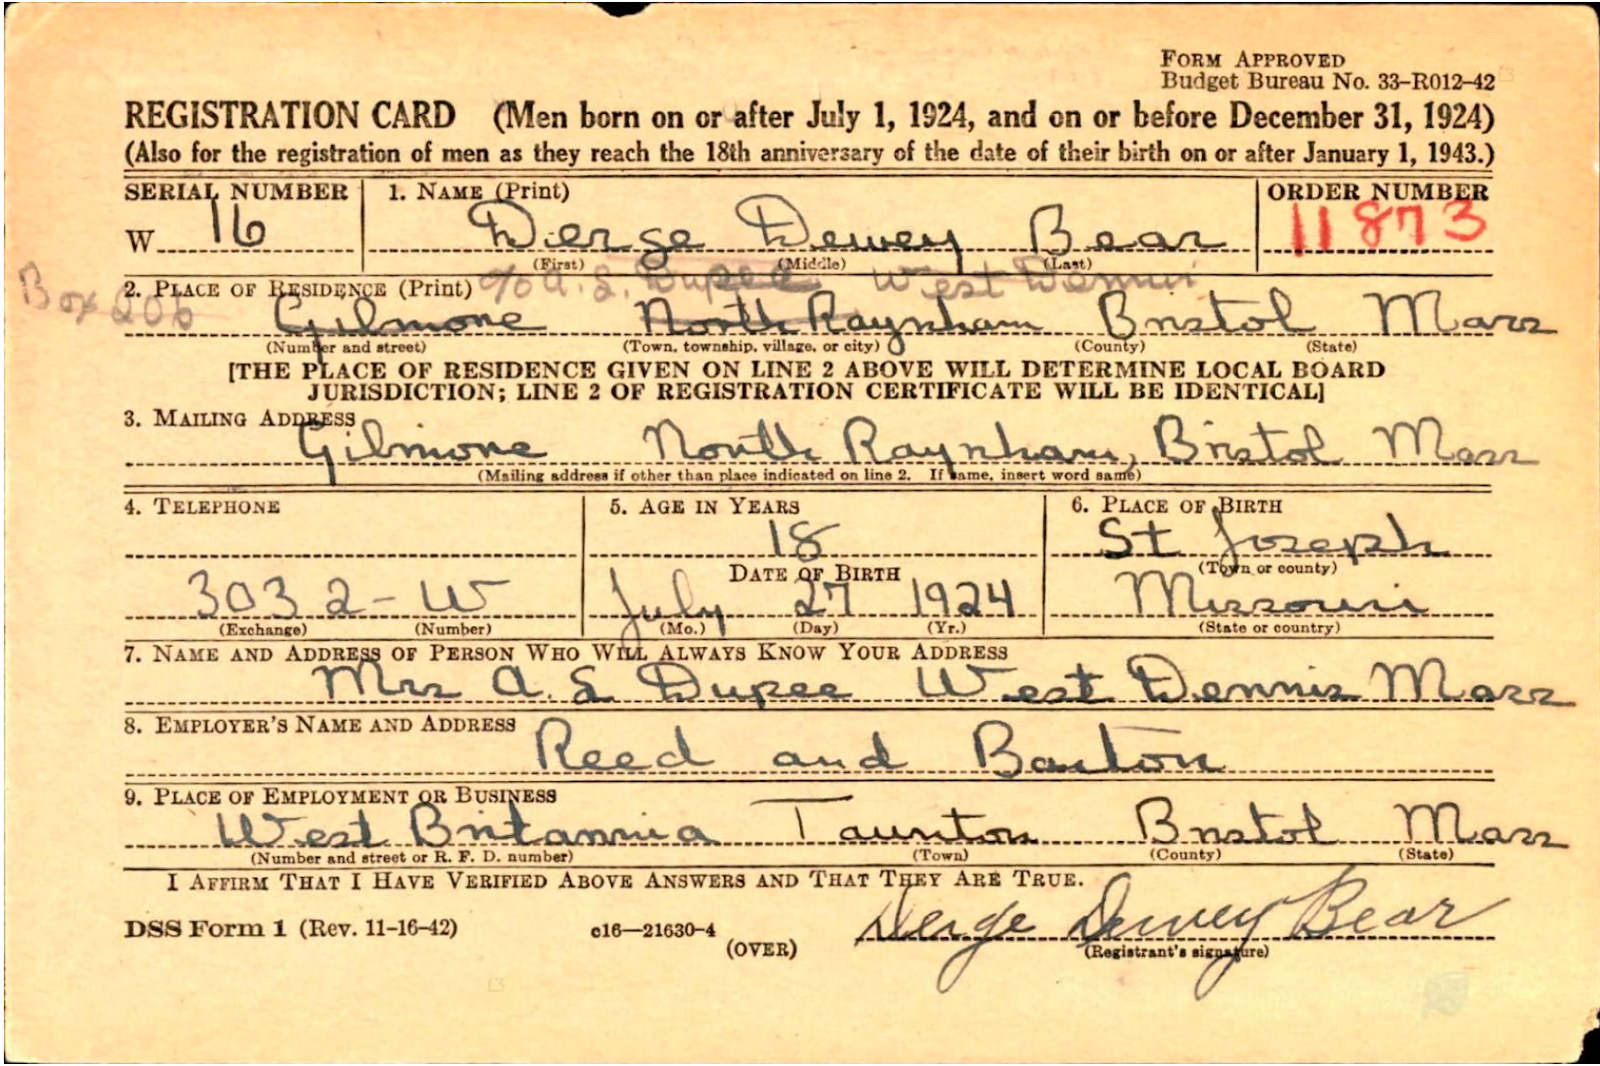 FORM APPROVED
Budget Bureau No. 33–R012–42
REGISTRATION CARD (Men born on or after July 1, 1924, and on or before December 31, 1924)
(Also for the registration of men as they reach the 18th anniversary of the date of their birth on or after January 1, 1943.)
SERIAL NUMBER 1. NAME (Print) ORDER NUMBER
W 16 Derge Dewey Bear 11873
(First) (Middle) (Last)
% A. S. Dupee West Dennis
Box 206 2. PLACE OF RESIDENCE (Print)
Gilmore North Raynham Bristol Mass
(Number and street) (Town, township, village, or city) (County) (State)
[THE PLACE OF RESIDENCE GIVEN ON LINE 2 ABOVE WILL DETERMINE LOCAL BOARD
JURISDICTION; LINE 2 OF REGISTRATION CERTIFICATE WILL BE IDENTICAL]
3. MAILING ADDRESS
Gilmore North Raynham, Bristol Mass
(Mailing address if other than place indicated on line 2. If same, insert word same)
4. TELEPHONE 5. AGE IN YEARS 6. PLACE OF BIRTH
18 St Joseph
DATE OF BIRTH (Town or county)
3032-W July 27 1924 Missouri
(Exchange) (Number) (Mo.) (Day) (Yr.) (State or country)
7. NAME AND ADDRESS OF PERSON WHO WILL ALWAYS KNOW YOUR ADDRESS
Mrs A. S Dupee West Dennis Mass
8. EMPLOYER'S NAME AND ADDRESS
Reed and Barton
9. PLACE OF EMPLOYMENT OR BUSINESS
West Britannia Taunton Bristol Mass
(Number and street or R. F. D. number) (Town) (County) (State)
I AFFIRM THAT I HAVE VERIFIED ABOVE ANSWERS AND THAT THEY ARE TRUE.
DSS Form 1 (Rev. 11-16-42) c16—21630-4 (OVER) Derge Dewey Bear
(Registrant's signature)